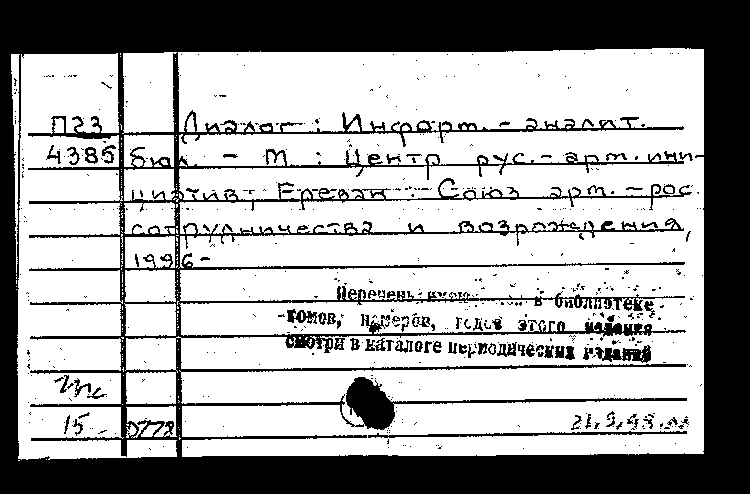 П23 Диалог : Информ. - аналит.
4385 бюл. - М : Центр рус. - арм. ини-
циатив ; Ереван : Союз арм. - рос.
сотрудничества и возрождения,
1996 -
Перечень в библиотеке
томов, номеров, годов этого издания
смотри в каталоге периодических изданий
15 D778 21.9.98